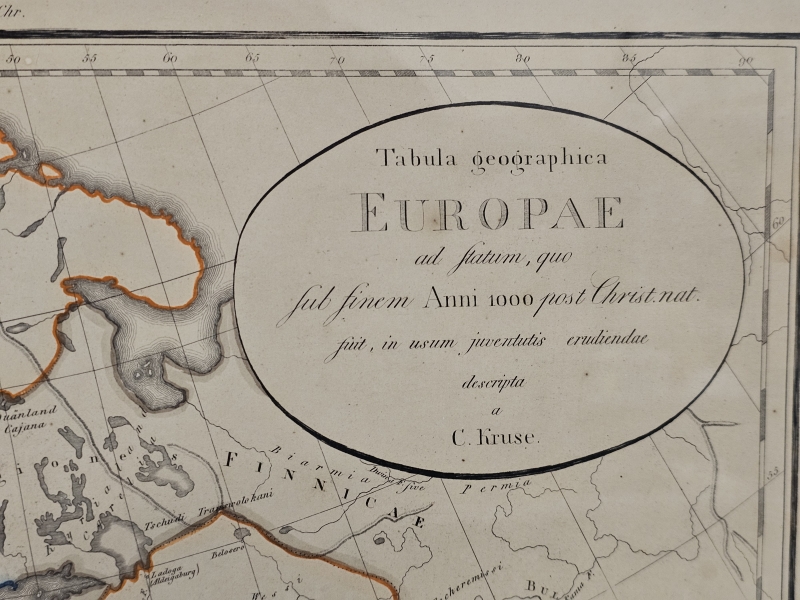 Chr.
50 55 60 65 70 75 80 85 90
Tabula geographica
EUROPAE
ad statum, quo
sub finem Anni 1000 post Christ. nat.
fuit, in usum juventutis erudiendae
descripta
a
C. Kruse.
60
Quänland
Cajana.
FINNICAE
Biarmia
Permia
55
Tschudi Transwolokani
Belosero
Ladoga
(Aldeigaburg)
Wessi
Kama F.